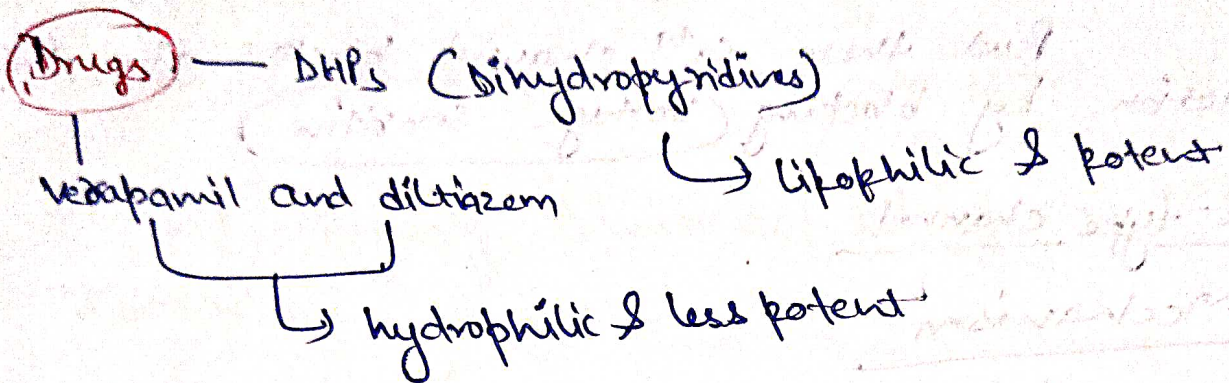 Drugs — DHPs (Dihydropyridines)
↳ lipophilic & potent
verapamil and diltiazem
↳ hydrophilic & less potent